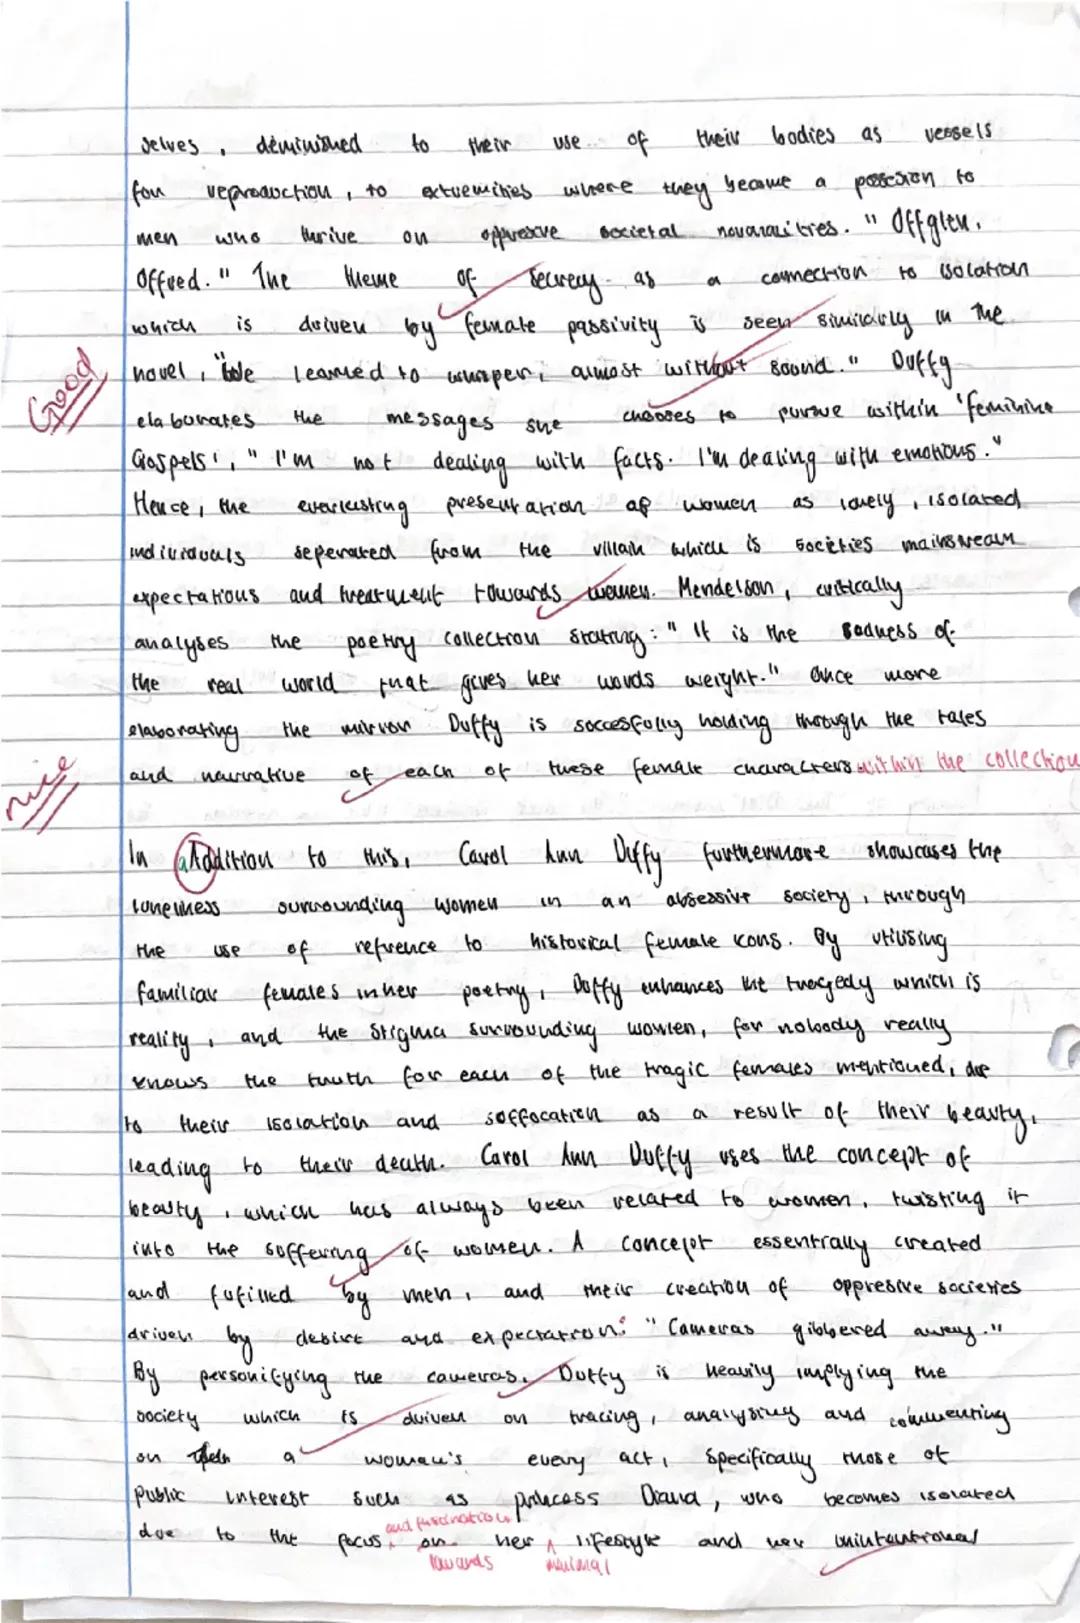 selves, deminished to their use of their bodies as vessels
for reproduction, to extremities where they became a possesion to
men who thrive on oppresive societal novanalities. " Offglen.
Offred." The theme of secrecy as a connection to isolation
which is driven by female passivity is seen similarly in the
Good
novel, "We learned to whisper, almost without sound." Duffy
elaborates the messages she chooses to pursue within 'feminine
Gospels', " I'm not dealing with facts. I'm dealing with emotions."
Hence, the everlasting presentation of women as lonely, isolated
individuals seperated from the villain which is societies mainstream
expectations and treatment towards women. Mendelson, critically
analyses the poetry collection stating: " It is the sadness of
the real world that gives her words weight." Once more
elaborating the mirror Duffy is soccesfully holding through the tales
nice
and narrative of each of these female characters within the collection
In aAddition to this, Carol Ann Duffy furthermore showcases the
loneliness surrounding women in an obsessive society, through
the use of refrence to historical female icons. By utilising
familiar females in her poetry, Duffy enhances the tragedy which is
reality, and the stigma surrounding women, for nobody really
knows the truth for each of the tragic females mentioned, due
to their isolation and soffocation as a result of their beauty,
leading to their death. Carol Ann Duffy uses the concept of
beauty, which has always been related to women, twisting it
into the soffering of women. A concept essentrally created
and fufilled by men, and their creation of oppresive societies
driven by desire and expectation: " Cameras gibbered away."
By personifying the cameras, Duffy is heavily implying the
society which is driven on tracing, analysing and commenting
on a woman's every act, specifically those of
public interest such as princess Diana, who becomes isolated
and fascination
due to the focus, on her lifestyle and her unintentional
towards minimal